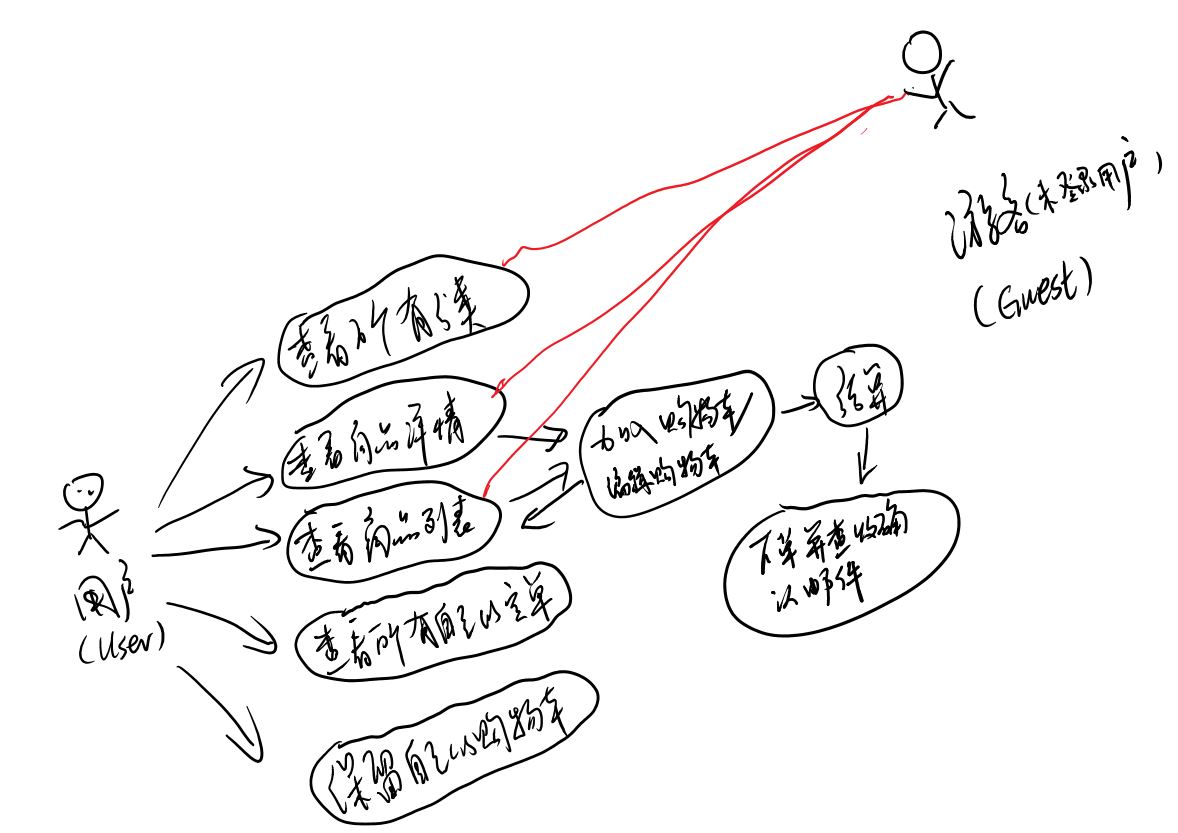 游客(未登录用户)
(Guest)
查看所有分类
查看商品详情
查看商品列表
查看所有自己的定单
保留自己的购物车
加入购物车
编辑购物车
结算
下单并查收确
认邮件
用户
(User)